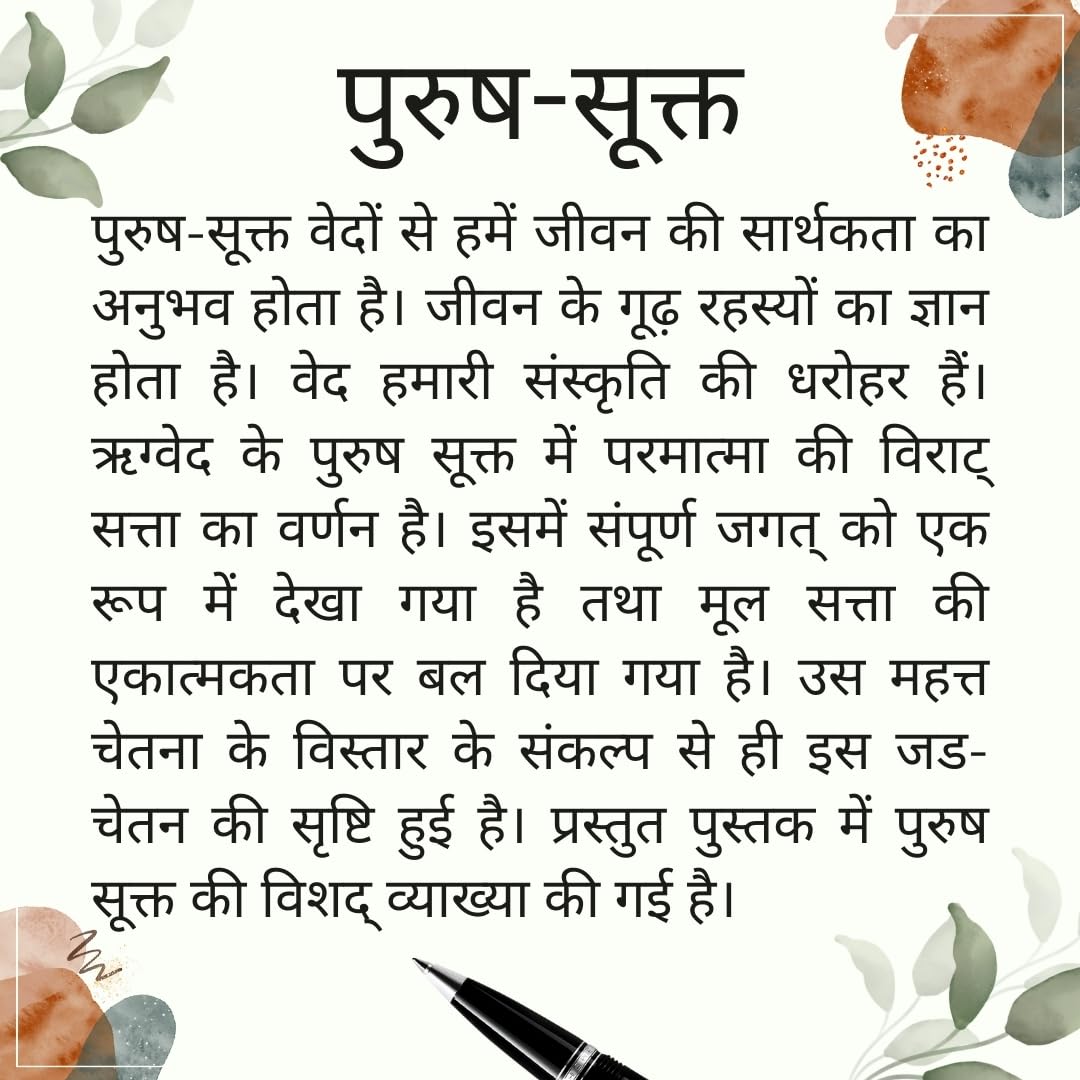 पुरुष-सूक्त
पुरुष-सूक्त वेदों से हमें जीवन की सार्थकता का
अनुभव होता है। जीवन के गूढ़ रहस्यों का ज्ञान
होता है। वेद हमारी संस्कृति की धरोहर हैं।
ऋग्वेद के पुरुष सूक्त में परमात्मा की विराट्
सत्ता का वर्णन है। इसमें संपूर्ण जगत् को एक
रूप में देखा गया है तथा मूल सत्ता की
एकात्मकता पर बल दिया गया है। उस महत्त
चेतना के विस्तार के संकल्प से ही इस जड-
चेतन की सृष्टि हुई है। प्रस्तुत पुस्तक में पुरुष
सूक्त की विशद् व्याख्या की गई है।